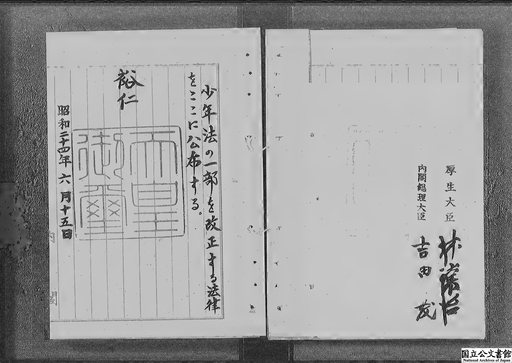 厚生大臣 林讓治
内閣總理大臣 吉田茂
少年法の一部を改正する法律
をここに公布する。
裕仁
天皇
御璽
昭和二十四年六月十五日
内閣
国立公文書館
National Archives of Japan